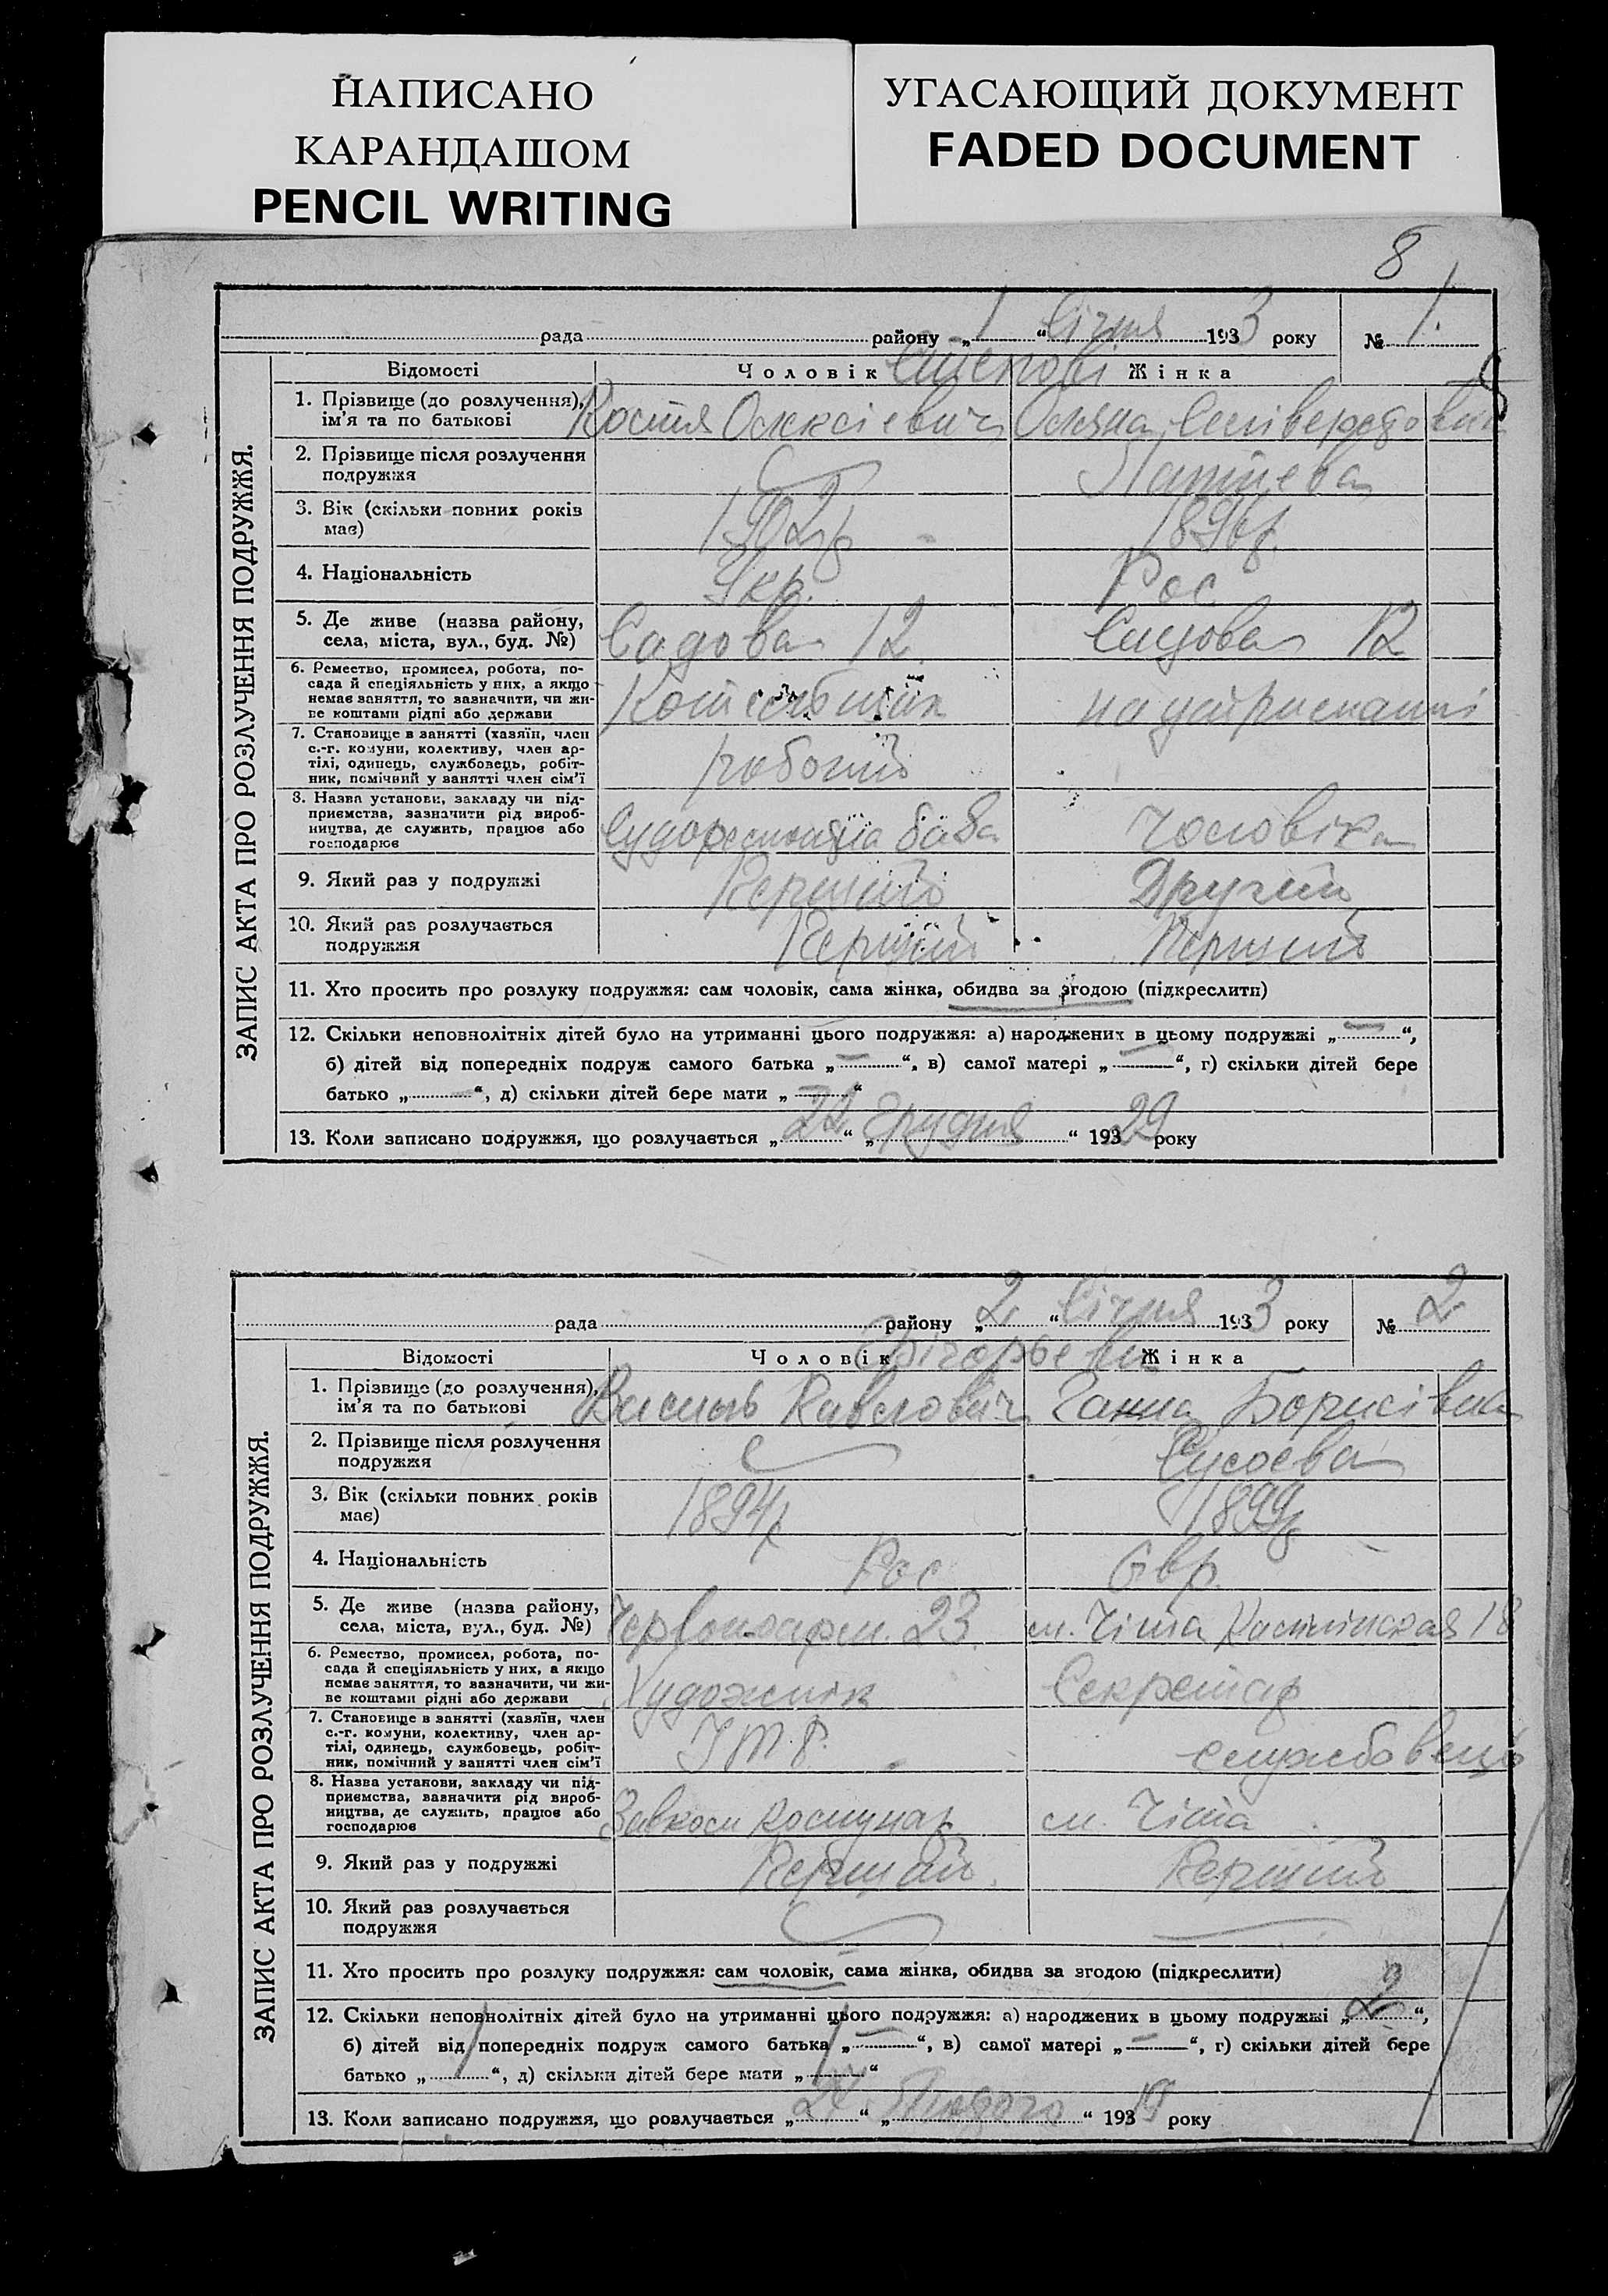 НАПИСАНО
КАРАНДАШОМ
PENCIL WRITING
УГАСАЮЩИЙ ДОКУМЕНТ
FADED DOCUMENT
8
рада району „1“ Січня 1933 року № 1.
Відомості Чоловік Жінка
ЗАПИС АКТА ПРО РОЗЛУЧЕННЯ ПОДРУЖЖЯ.
1. Прізвище (до розлучення), ім'я та по батькові Костя Олексієвич
2. Прізвище після розлучення
подружжя
3. Вік (скільки повних років
має) 1902 р 1896 р.
4. Національність Укр. Рос
5. Де живе (назва району,
села, міста, вул., буд. №) Садовая 12 Садовая 12
6. Ремество, промисел, робота, по-
сада й спеціяльність у них, а якщо
немає заняття, то зазначити, чи жи-
ве коштами рідні або держави на утриманні
7. Становище в занятті (хазяїн, член
с.-г. комуни, колективу, член ар-
тілі, одинець, службовець, робіт-
ник, помічний у занятті член сім'ї робочий
8. Назва установи, закладу чи під-
приємства, зазначити рід вироб-
ництва, де служить, працює або
господарює чоловіка
9. Який раз у подружжі Перший Другий
10. Який раз розлучається
подружжя Перший Перший
11. Хто просить про розлуку подружжя: сам чоловік, сама жінка, обидва за згодою (підкреслити)
12. Скільки неповнолітніх дітей було на утриманні цього подружжя: а) народжених в цьому подружжі „—“,
б) дітей від попередніх подруж самого батька „—“, в) самої матері „—“, г) скільки дітей бере
батько „—“, д) скільки дітей бере мати „—“
13. Коли записано подружжя, що розлучається „22“ „Грудня“ 19329 року
рада району „2“ Січня 1933 року № 2
Відомості Чоловік Жінка
ЗАПИС АКТА ПРО РОЗЛУЧЕННЯ ПОДРУЖЖЯ.
1. Прізвище (до розлучення),
ім'я та по батькові Василь Павлович Ганна Борисівна
2. Прізвище після розлучення
подружжя Сисоєва
3. Вік (скільки повних років
має) 1894 р 1899 р
4. Національність Рос Євр.
5. Де живе (назва району,
села, міста, вул., буд. №) Червоноарм. 23. м. Чіта 18
6. Ремество, промисел, робота, по-
сада й спеціяльність у них, а якщо
немає заняття, то зазначити, чи жи-
ве коштами рідні або держави Художник Секретар
7. Становище в занятті (хазяїн, член
с.-г. комуни, колективу, член ар-
тілі, одинець, службовець, робіт-
ник, помічний у занятті член сім'ї ІТР. службовець
8. Назва установи, закладу чи під-
приємства, зазначити рід вироб-
ництва, де служить, працює або
господарює м. Чіта
9. Який раз у подружжі Перший Перший
10. Який раз розлучається
подружжя
11. Хто просить про розлуку подружжя: сам чоловік, сама жінка, обидва за згодою (підкреслити)
12. Скільки неповнолітніх дітей було на утриманні цього подружжя: а) народжених в цьому подружжі „2“,
б) дітей від попередніх подруж самого батька „—“, в) самої матері „—“, г) скільки дітей бере
батько „“, д) скільки дітей бере мати „“
13. Коли записано подружжя, що розлучається „“ „Лютого“ 19319 року